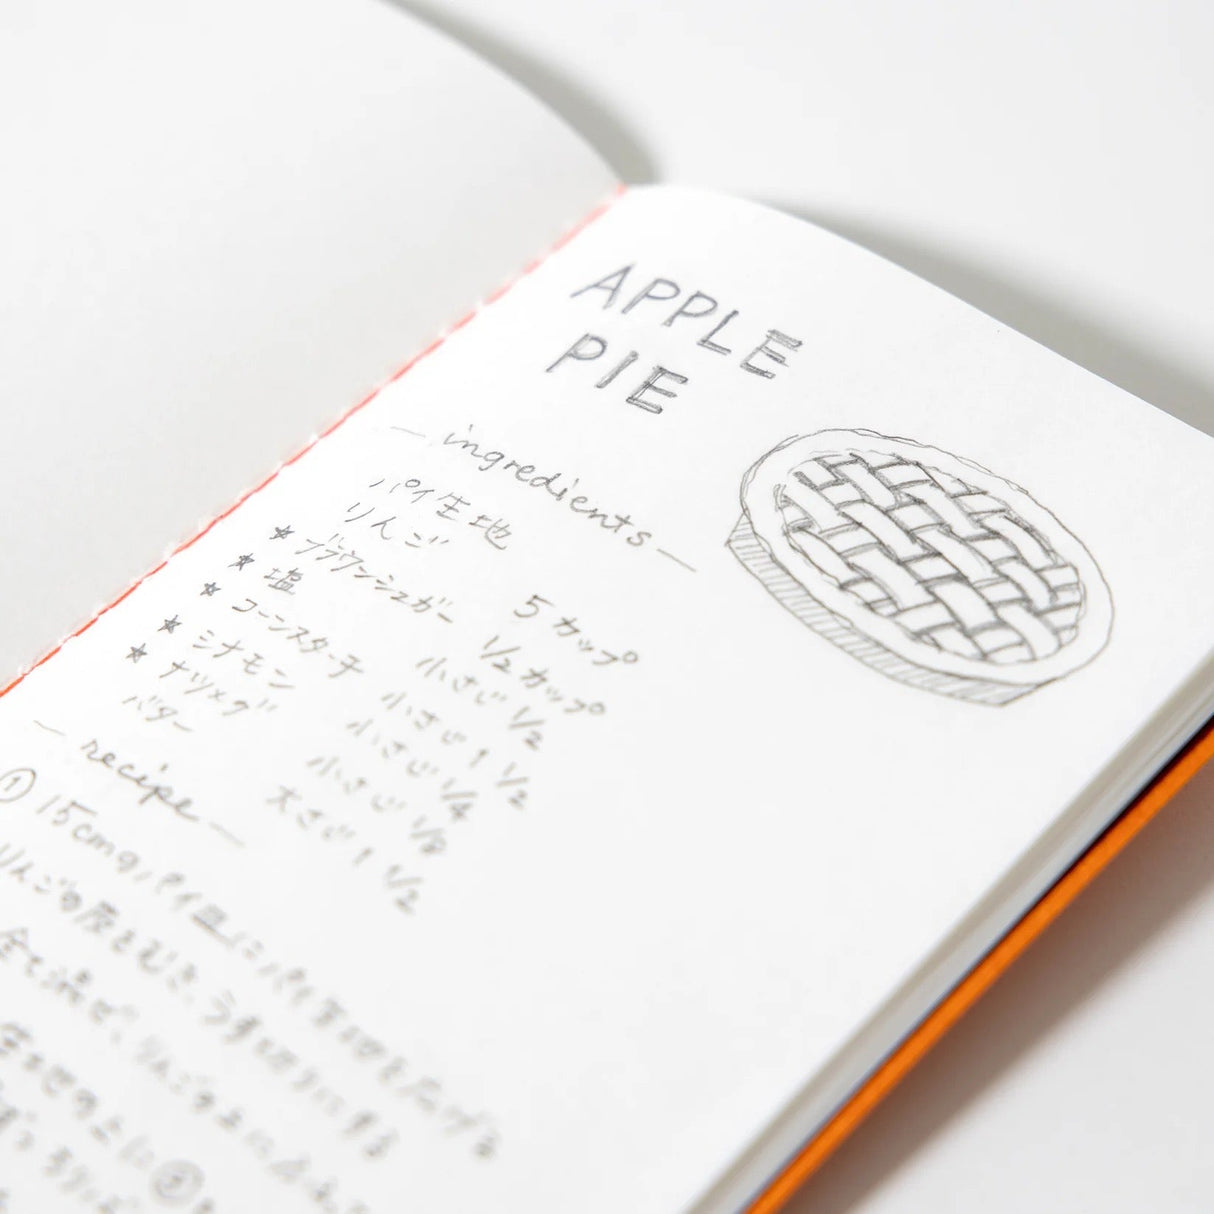 APPLE
PIE
— ingredients —
パイ生地
りんご 5カップ
★ ブラウンシュガー 1/2カップ
★ 塩 小さじ 1/2
★ コーンスターチ 小さじ 1 1/2
★ シナモン 小さじ 1/4
★ ナツメグ 小さじ 1/8
バター 大さじ 1 1/2
— recipe —
① 15cmのパイ皿にパイ生地を広げる
りんごの皮をむき、うす切りにする
全て混ぜ、りんごの上に
生地の上に